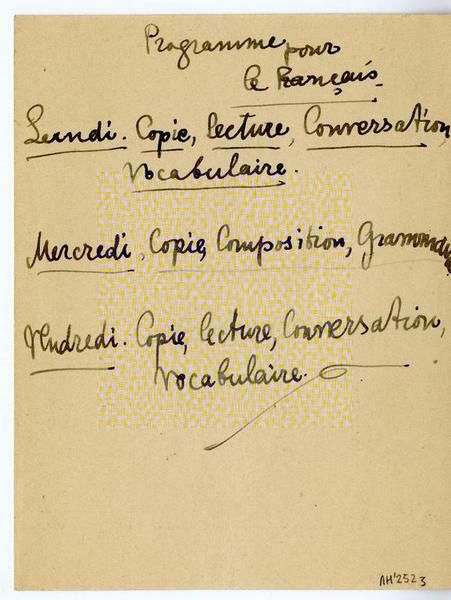 Programme pour
le Français
Lundi. Copie, lecture, Conversation,
Vocabulaire.
Mercredi, Copie, Composition, Grammaire
Vendredi. Copie, lecture, Conversation,
Vocabulaire.
ΛH'2523